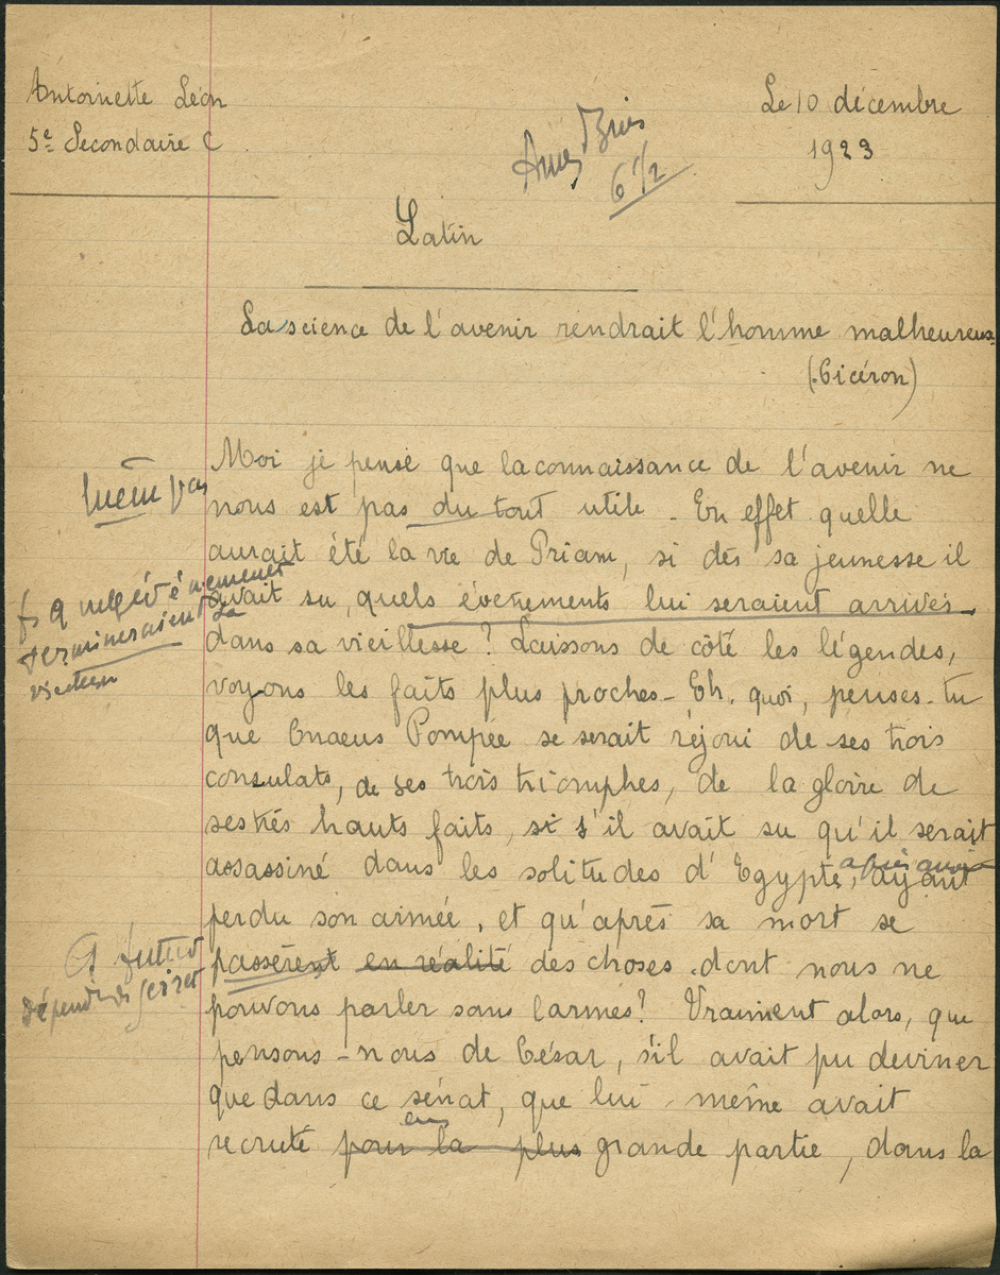 Antoinette Léon
5e Secondaire C
Le 10 décembre
1923
Assez Bien
6 1/2
Latin
La science de l'avenir rendrait l'homme malheureux
(Cicéron)
Moi je pense que la connaissance de l'avenir ne
nous est pas du tout utile. En effet quelle
aurait été la vie de Priam, si dès sa jeunesse il
avait su, quels évènements lui seraient arrivés
dans sa vieillesse ? Laissons de côté les légendes,
voyons les faits plus proches - Eh. quoi, penses-tu
que Cnaeus Pompée se serait réjoui de ses trois
consulats, de ses trois triomphes, de la gloire de
ses très hauts faits, si s'il avait su qu'il serait
assassiné dans les solitudes d'Egypte, ayant
perdu son armée, et qu'après sa mort se
passèrent en réalité des choses dont nous ne
pouvons parler sans larmes ? Vraiment alors, que
pensons-nous de César, s'il avait pu deviner
que dans ce sénat, que lui-même avait
en
recruté pour la plus grande partie, dans la
pas
évènements
termineraient sa
vieillesse
futur
dépend de